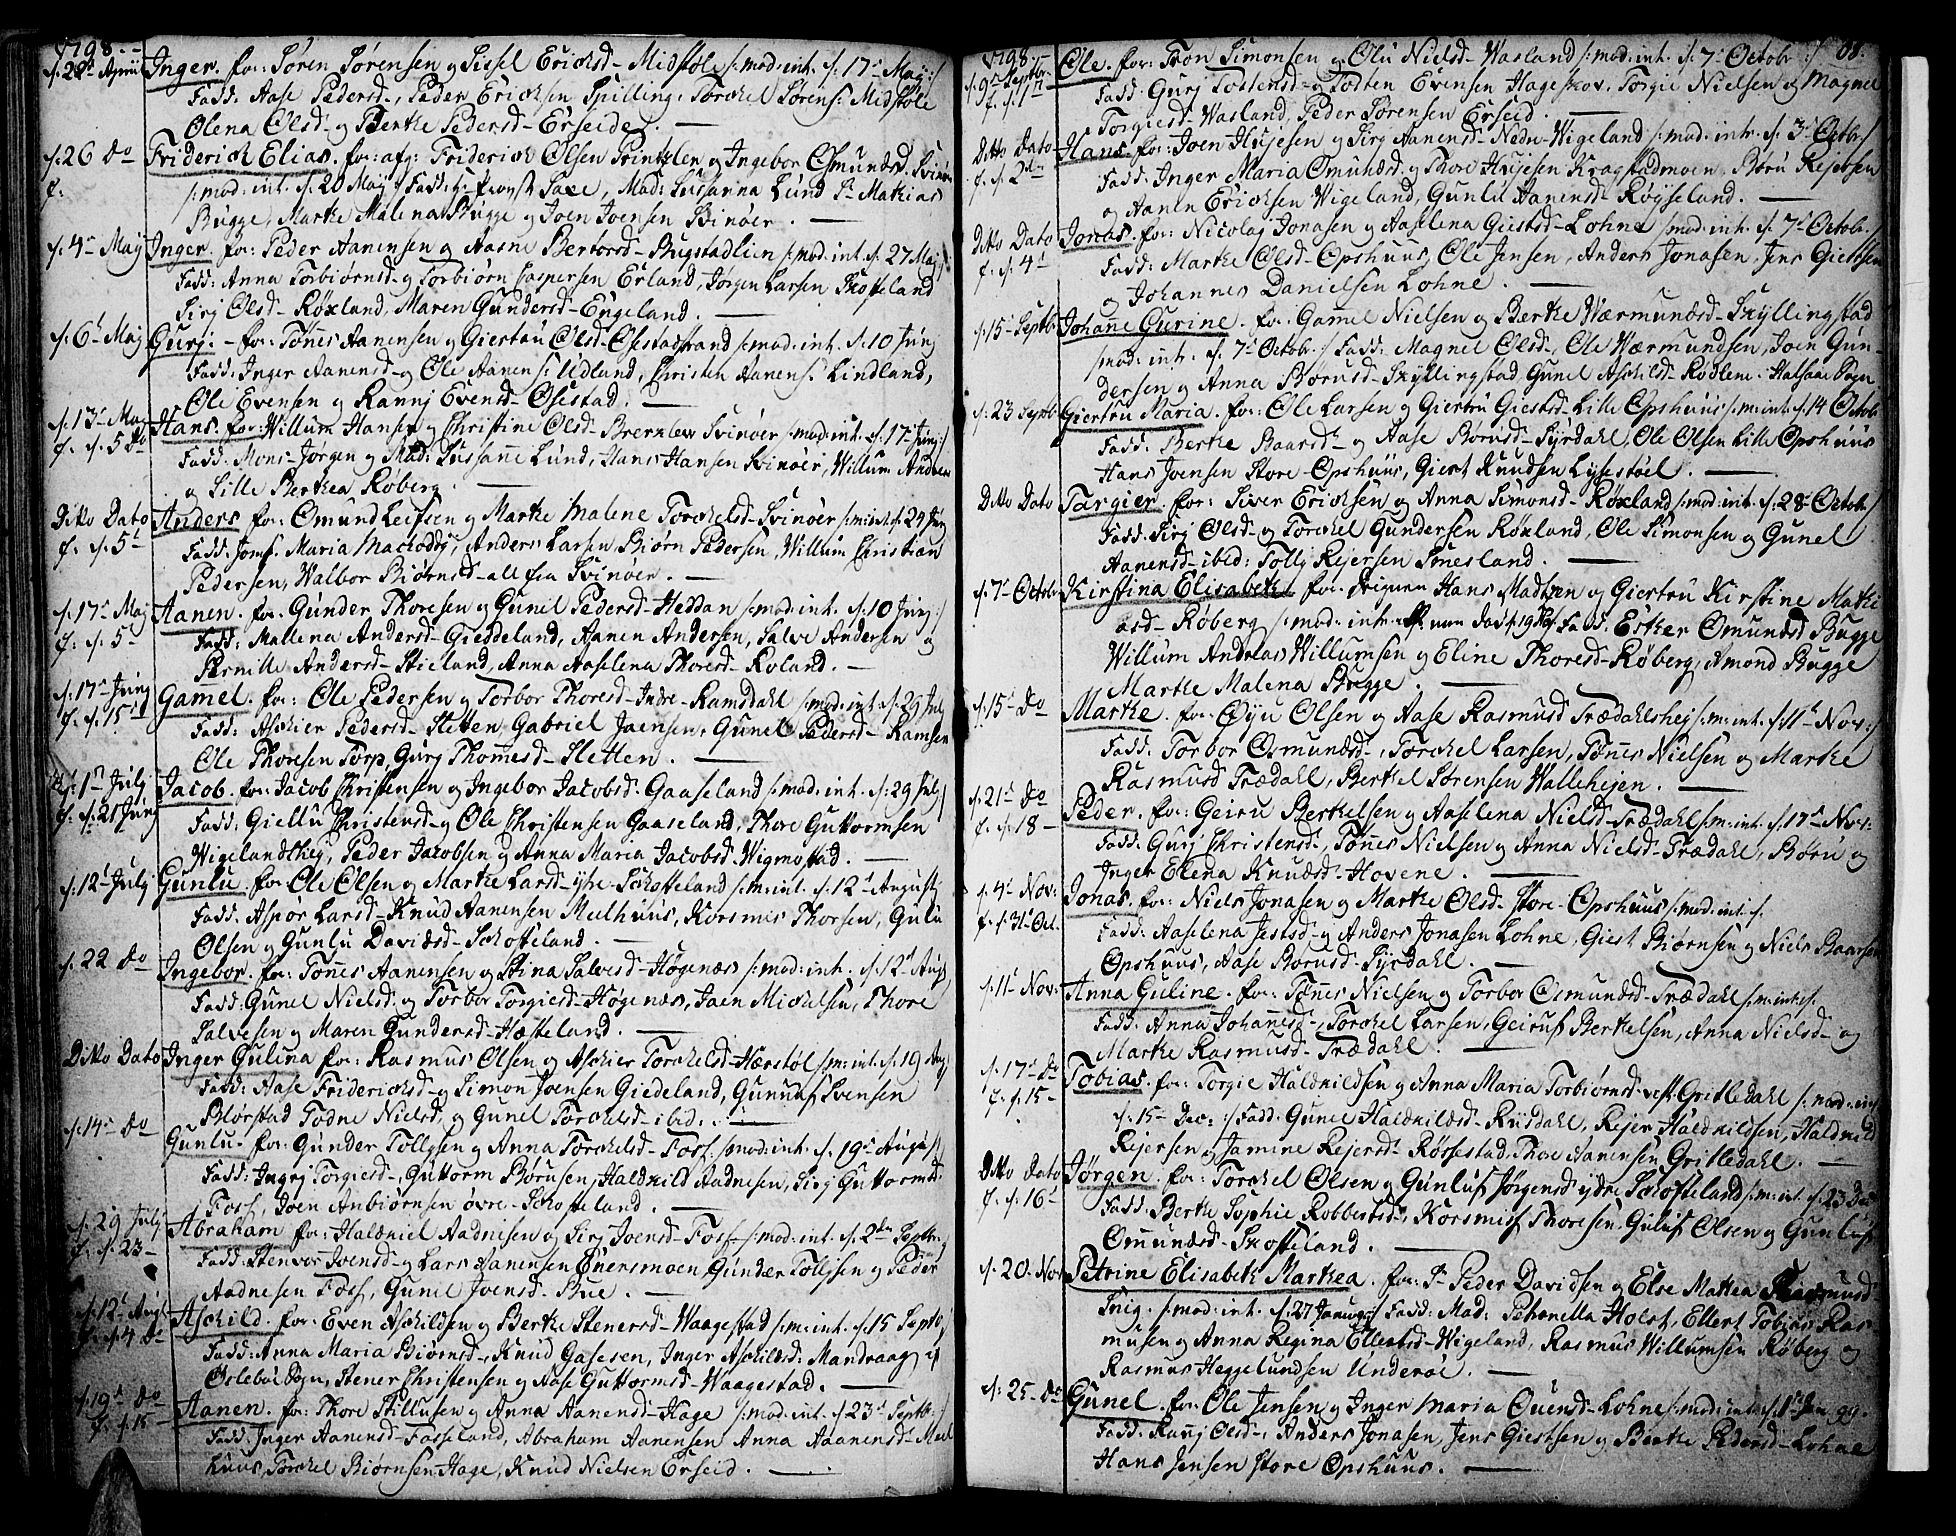 1798
d: 22d April Inger. for: Søren Sørensen og Sissel Ericksd- Midtbøe /: mod: int. d: 17de Maij :/
Fadd: Aase Pedersd-, Peder Ericksen Spilling, Torckel Sørens: Midbøe
Olena Olsd- og Berthe Pedersd- Erseide.
d: 26 do Friderich Elias. for: afg: Friderich Olsen Printzlen og Ingebor Osmundsd. Svinøer
f. /: mod: int. d: 20 Maij :/ Fadd: Hr Provst Saxe, Mad: Susanna Lund Sr Mathias
Bugge, Marthe Malena Bugge og Joen Joensen Svinøer.
d: 4de Maij Inger. for: Peder Aanensen og Aasne Bertorsd- Bugstadlien /: mod: int. d: 27 Maij
Fadd: Anna Torbiørnsd- og Torbiørn Caspersen Erland, Jørgen Larsen Skofteland
Sirj Olsd- Røxland, Maren Gundersd- Engeland.
d: 6te Maij Gurj. for: Tønes Aanensen og Giertru Olsd- Osestadstrand /: mod: int. d: 10 Junij
Fadd: Inger Aanensd- og Ole Aanens: Udland, Christen Aanens: Lindland,
Ole Evensen og Rannj Evensd- Osestad.
d: 13de Maij Hans. for: Willum Hansen og Christine Olsd- Brecklev Svinøer /: mod: int. d: 17de Junij :/
f. d: 5 do Fadd: Mons: Jørgen og Mad: Susanne Lund, Hans Hansen Svinøer, Willum Andreas
og Lille Berthea Røberg.
Ditto Dato Anders for: Omund Leifsen og Marthe Malene Torckelsd- Svinøer /: m: int. d: 24 Junij
f. d: 5te Fadd: Jomf. Maria Macloddy, Anders Larsen, Biørn Pedersen, Willum Christian
Pedersen, Walbor Biørnsd- all fra Svinøer.
d: 17de Maij Aanen. for: Gunder Thoresen og Gunil Pedersd- Heddan /: mod: int. d: 10 Junij :/
f. d: 5te Fadd: Mallena Andersd- Gieddeland, Aanen Andersen, Salve Andersen og
Pernille Andersd- Stieland, Anna Aaselena Thoresd- Roland.
d: 17de Junij Gamel. for: Ole Pedersen og Torbor Thoresd- Indre- Ramsdahl /: mod: int. d: 29 Julj
f. d: 15de Fadd: Aschier Pedersd- Sletten, Gabriel Jaensen, Gunel Pedersd- Ramsen
Ole Thoresen Torp, Gurj Thomesd- Sletten.
d: 1ste Julij Jacob. for: Jacob Christensen og Ingebor Jacobsd- Gaaseland /: mod: int. d: 29 Julj
f. d: 21 Junij Fadd: Giellu Christensd- og Ole Christensen Gaaseland, Thore Guttormsen
Wigelandshej, Peder Jacobsen og Anna Maria Jacobsd- Wigmostad.
d: 12te Julij Gunlu. for: Ole Olsen og Marthe Larsd- ytre- Schofteland /: m: int. d: 12te Augustj
Fadd: Aspor Larsd- Knud Aanensen Melhuus, Korsmis Thorsen, Gulu
Olsen og Gunlu Davidsd- Schofteland.
d: 22 do Ingebor. for: Tønnes Aanensen og Stina Salvesd- Høgenæs /: mod: int. d: 12te Aug:
Fadd: Gunel Nielsd- og Torbor Torgiesd- Høgenæs, Jaen Mickelsen, Thore
Salvesen og Maren Gundersd- Hæfteland.
Ditto Dato Inger Gulina for: Rasmus Olsen og Aschier Torckelsd- Hærstøl /: m: int. d: 19 Aug
Fadd: Aase Friderichsd- og Simon Joensen Giedeland, Gunnuf Svensen
Blørstad Todne Nielsd- og Gunel Torckelsd- ibid.
d: 14de do Gunlu- for: Gunder Tollejsen og Anna Torckelsd- Foss /: mod: int. d: 19de Aug:
Fadd: Ingrj Torgiesd-, Guttorm Børusen, Haldkild Aadnesen, Sirj Guttormsd-
Foss, Joen Anbiørnsen øvre- Schofteland.
d: 29 Julj Abraham for: Haldkiel Aadnesen og Sirj Joensd- Foss /: mod: int. d: 2den Septbr:
f. d: 23- Fadd: Stenvor Joensd- og Lars Aanensen Enersmoen, Gunder Tollejsen og Peder
Aadnesen Foss, Gunel Joensd- Bue.
d: 12te Aug: Aschild. for: Even Aschildsen og Berthe Stenersd- Waagestad /: m: int. d: 15 Septb:
f. d: 4 do Fadd: Anna Maria Biørnsd-, Knud Gasesen, Inger Aschildsd: Mandraag i
Oslebøe Sogn, Stener Christensen og Aase Guttormsd- Waagestad.
d: 19de do Aanen. for: Thore Stillufsen og Anna Aanensd- Hage /: mod: int. d: 23de Septb: :/
f. d: 15 Fadd: Inger Aanensd- Fasseland, Abraham Aanensen Anna Aaanensd- Meel
huus, Torckel Biørnsen Hage, Knud Nielsen Erseid.
1798 68.
d: 9de Septbr Ole. for: Tron Simonsen og Olu Nielsd- Wasland /: mod: int. d: 7de Octobr :/
f. d: 1ste Fadd: Gurj Tostensd- og Tosten Evensen Hageskov. Torgie Nielsen og Magnel
Torgiesd- Wasland, Peder Sørensen Erseid.
Ditto Dato Hans for: Joen Hujesen og Sirj Aanensd- Nedre- Wigeland /: mod: int. d: 3de Octobr
f. d: 2den Fadd: Inger Maria Omundsd- og Thore Huijesen Kragstadmoen, Børu Rejersen
og Aanen Ericksen Wigeland, Gunlu Aanensd- Røyseland.
Ditto Dato Jonas for: Nicolay Jonasen og Aaselena Giestsd- Lohne /: mod: int. d: 7de Octobr:
f. d: 4de Fadd: Marthe Olsd- Opshuus, Ole Jensen, Anders Jonasen, Jens Giestsen
og Johannes Danielsen Lohne.
d: 15de Septb: Johane Gurine. for: Gamel Nielsen og Berthe Wærmundsd- Skyllingstad
/: mod: int. d: 7de Octobr. :/ Fadd: Magnel Olsd-, Ole Wærmundsen, Joen Gun-
dersen og Anna Borusd- Skyllingstad, Gunel Aschilsd- Rødlem- Halsaae Sogn.
d: 23 Septb: Giertru Maria. for: Ole Larsen og Giertru Giestsd- Lille Opshuus /: m: int. d: 14 Octob:
Fadd: Berthe Baarsd- og Aase Børusd- Syrdahl, Ole Olsen Lille Opshuus
Hans Joensen Store- Opshuus, Giert Knudsen Lysestøel.
Ditto Dato Targier. for: Siver Ericksen og Anna Simonsd- Røxland /: mod: int. d: 28de Octob:
Fadd: Sirj Olsd- og Torckel Gundersen Røxland, Ole Simonsen og Gunel
Aanensd- ibid: Tollj Rejersen Sønesland.
d: 7de Octobr Kirstina Elisabeth for: Pigmn Hans Madtzen og Giertru Kirstine Mathi
asd- Røberg /: mod: int. Fadd: Ester Omundsd Bugge
Willum Andreas Willumsen og Eline Thoresd- Røberg, Amond Bugge
Marthe Malena Bugge.
d: 15de do Marthe. for: Øyu Olsen og Aase Rasmusd Trædahlshej /: m: int. d: 11te Nov: :/
Fadd: Torbor Osmundsd-, Torckel Larsen, Tønes Nielsen og Marthe
Rasmusd Trædahl, Berthel Sørensen Wallehejen.
d: 21de do Peder. for: Geiru Berthelsen og Aaselena Nielsd- Trædahl /: m: int. d: 17de Nov:
f. d: 18- Fadd: Gurj Christensd-, Tønes Nielsen og Anna Nielsd- Trædahl, Børu og
Inger Elena Knudsd- Hovene.
d: 4de Nov: Jonas. for: Niels Jonasen og Marthe Olsd- Store- Opshuus /: mod: int. d.
f. d: 31te Oct. Fadd: Aaselena Jestsd- og Anders Jonasen Lohne, Giest Biørnsen og Niels Baarsen
Opshuus, Aase Borusd- Syrdahl.
d: 11te Nov: Anna Guline. for: Tønes Nielsen og Torbor Osmundsd- Trædahl /: m: int: d.
Fadd: Anna Johannesd-, Torckel Larsen, Geiruf Berthelsen, Anna Nielsd- og
Marthe Rasmusd- Trædahl.
d: 17de do Tobias. for: Torgie Haldkildsen og Anna Maria Torbiørnsd- vest Gritledahl /: mod: int.
f. d: 15- d: 15- Dec: :/ Fadd: Gunel Haldkildsd- Rysdahl, Rejer Haldkildsen, Haldkild
Rejersen og Jamine Rejersd- Røssestad, Thore Aanensen Gritledahl.
Ditto Dato Jørgen. for: Torckel Olsen og Gunluf Jørgensd ydre Schofteland /: m: int. d: 23 Dec
f. d: 16de Fadd: Berthe Sophie Robbertsd-, Korsmis Thoresen, Guluf Olsen og Gunluf
Omundsd- Skofteland.
d: 20. Nov: Petrine Elisabeth Marthea. for: Sr Peder Davidsen og Else Mathea Rasmusd-
Snig. /: mod: int. d: 27 Januarij :/ Fadd: Mad: Pethronella Holst, Ellert Tobias Ras-
musen og Anna Regina Ellertsd- Wigeland, Rasmus Willumsen Røberg og
Rasmus Heggelundsen Underøe.
d: 25- do Gunel. for: Ole Jensen og Inger Maria Ouensd- Lohne /: mod: int. d: 1ste Jan 99.
Fadd: Ranj Olsd-, Anders Jonasen, Jens Giestsen og Berthe Pedersd- Lohne
Hans Jensen Store Opshuus.